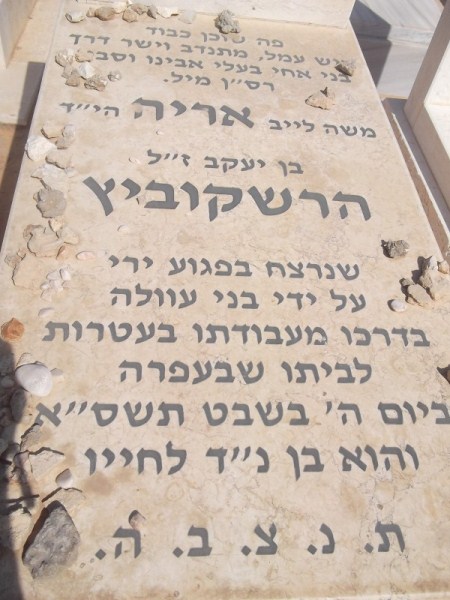 פה שוכן כבוד
איש עמל, מתנדב וישר דרך
בני אחי בעלי אבינו וסב
רס״ן מיל.
משה לייב אריה הי״ד
בן יעקב ז״ל
הרשקוביץ
שנרצח בפגוע ירי
על ידי בני עוולה
בדרכו מעבודתו בעטרות
לביתו שבעפרה
ביום ה׳ בשבט תשס״א
והוא בן נ״ד לחייו
ת. נ. צ. ב. ה.